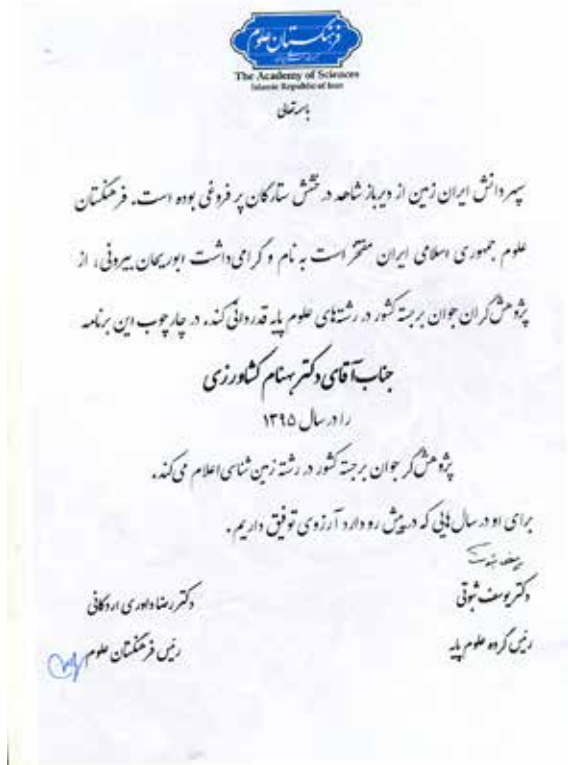 فرهنگستان علوم
The Academy of Sciences
Islamic Republic of Iran
باسمه تعالی
سپهر دانش ایران زمین از دیرباز شاهد درخشش ستارگان پر فروغی بوده است. فرهنگستان
علوم جمهوری اسلامی ایران مفتخر است به نام و گرامی‌داشت ابوریحان بیرونی، از
پژوهش‌گران جوان برجسته کشور در رشته‌های علوم پایه قدردانی کند. در چارچوب این برنامه
جناب آقای دکتر بهنام کشاورزی
را در سال ۱۳۹۵
پژوهش‌گر جوان برجسته کشور در رشته زمین شناسی اعلام می‌کند.
برای او در سال هایی که در پیش رو دارد آرزوی توفیق داریم.
دکتر یوسف ثبوتی
دکتر رضا داوری اردکانی
رئیس گروه علوم پایه
رئیس فرهنگستان علوم